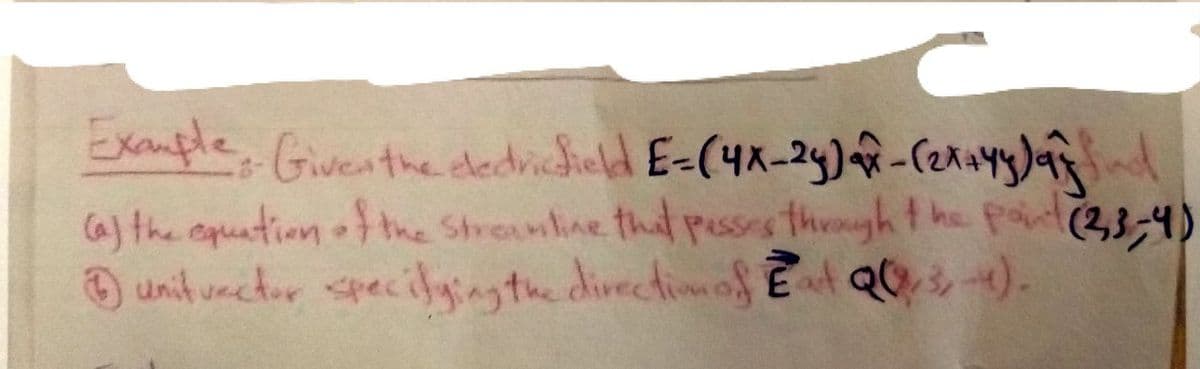 Example:- Given the electric field E=(4x-2y)âx-(2x+4y)ây find
(a) the equation of the streamline that passes through the point (2,3,-4)
(b) unit vector specifying the direction of E⃗ at Q(2,3,-4).